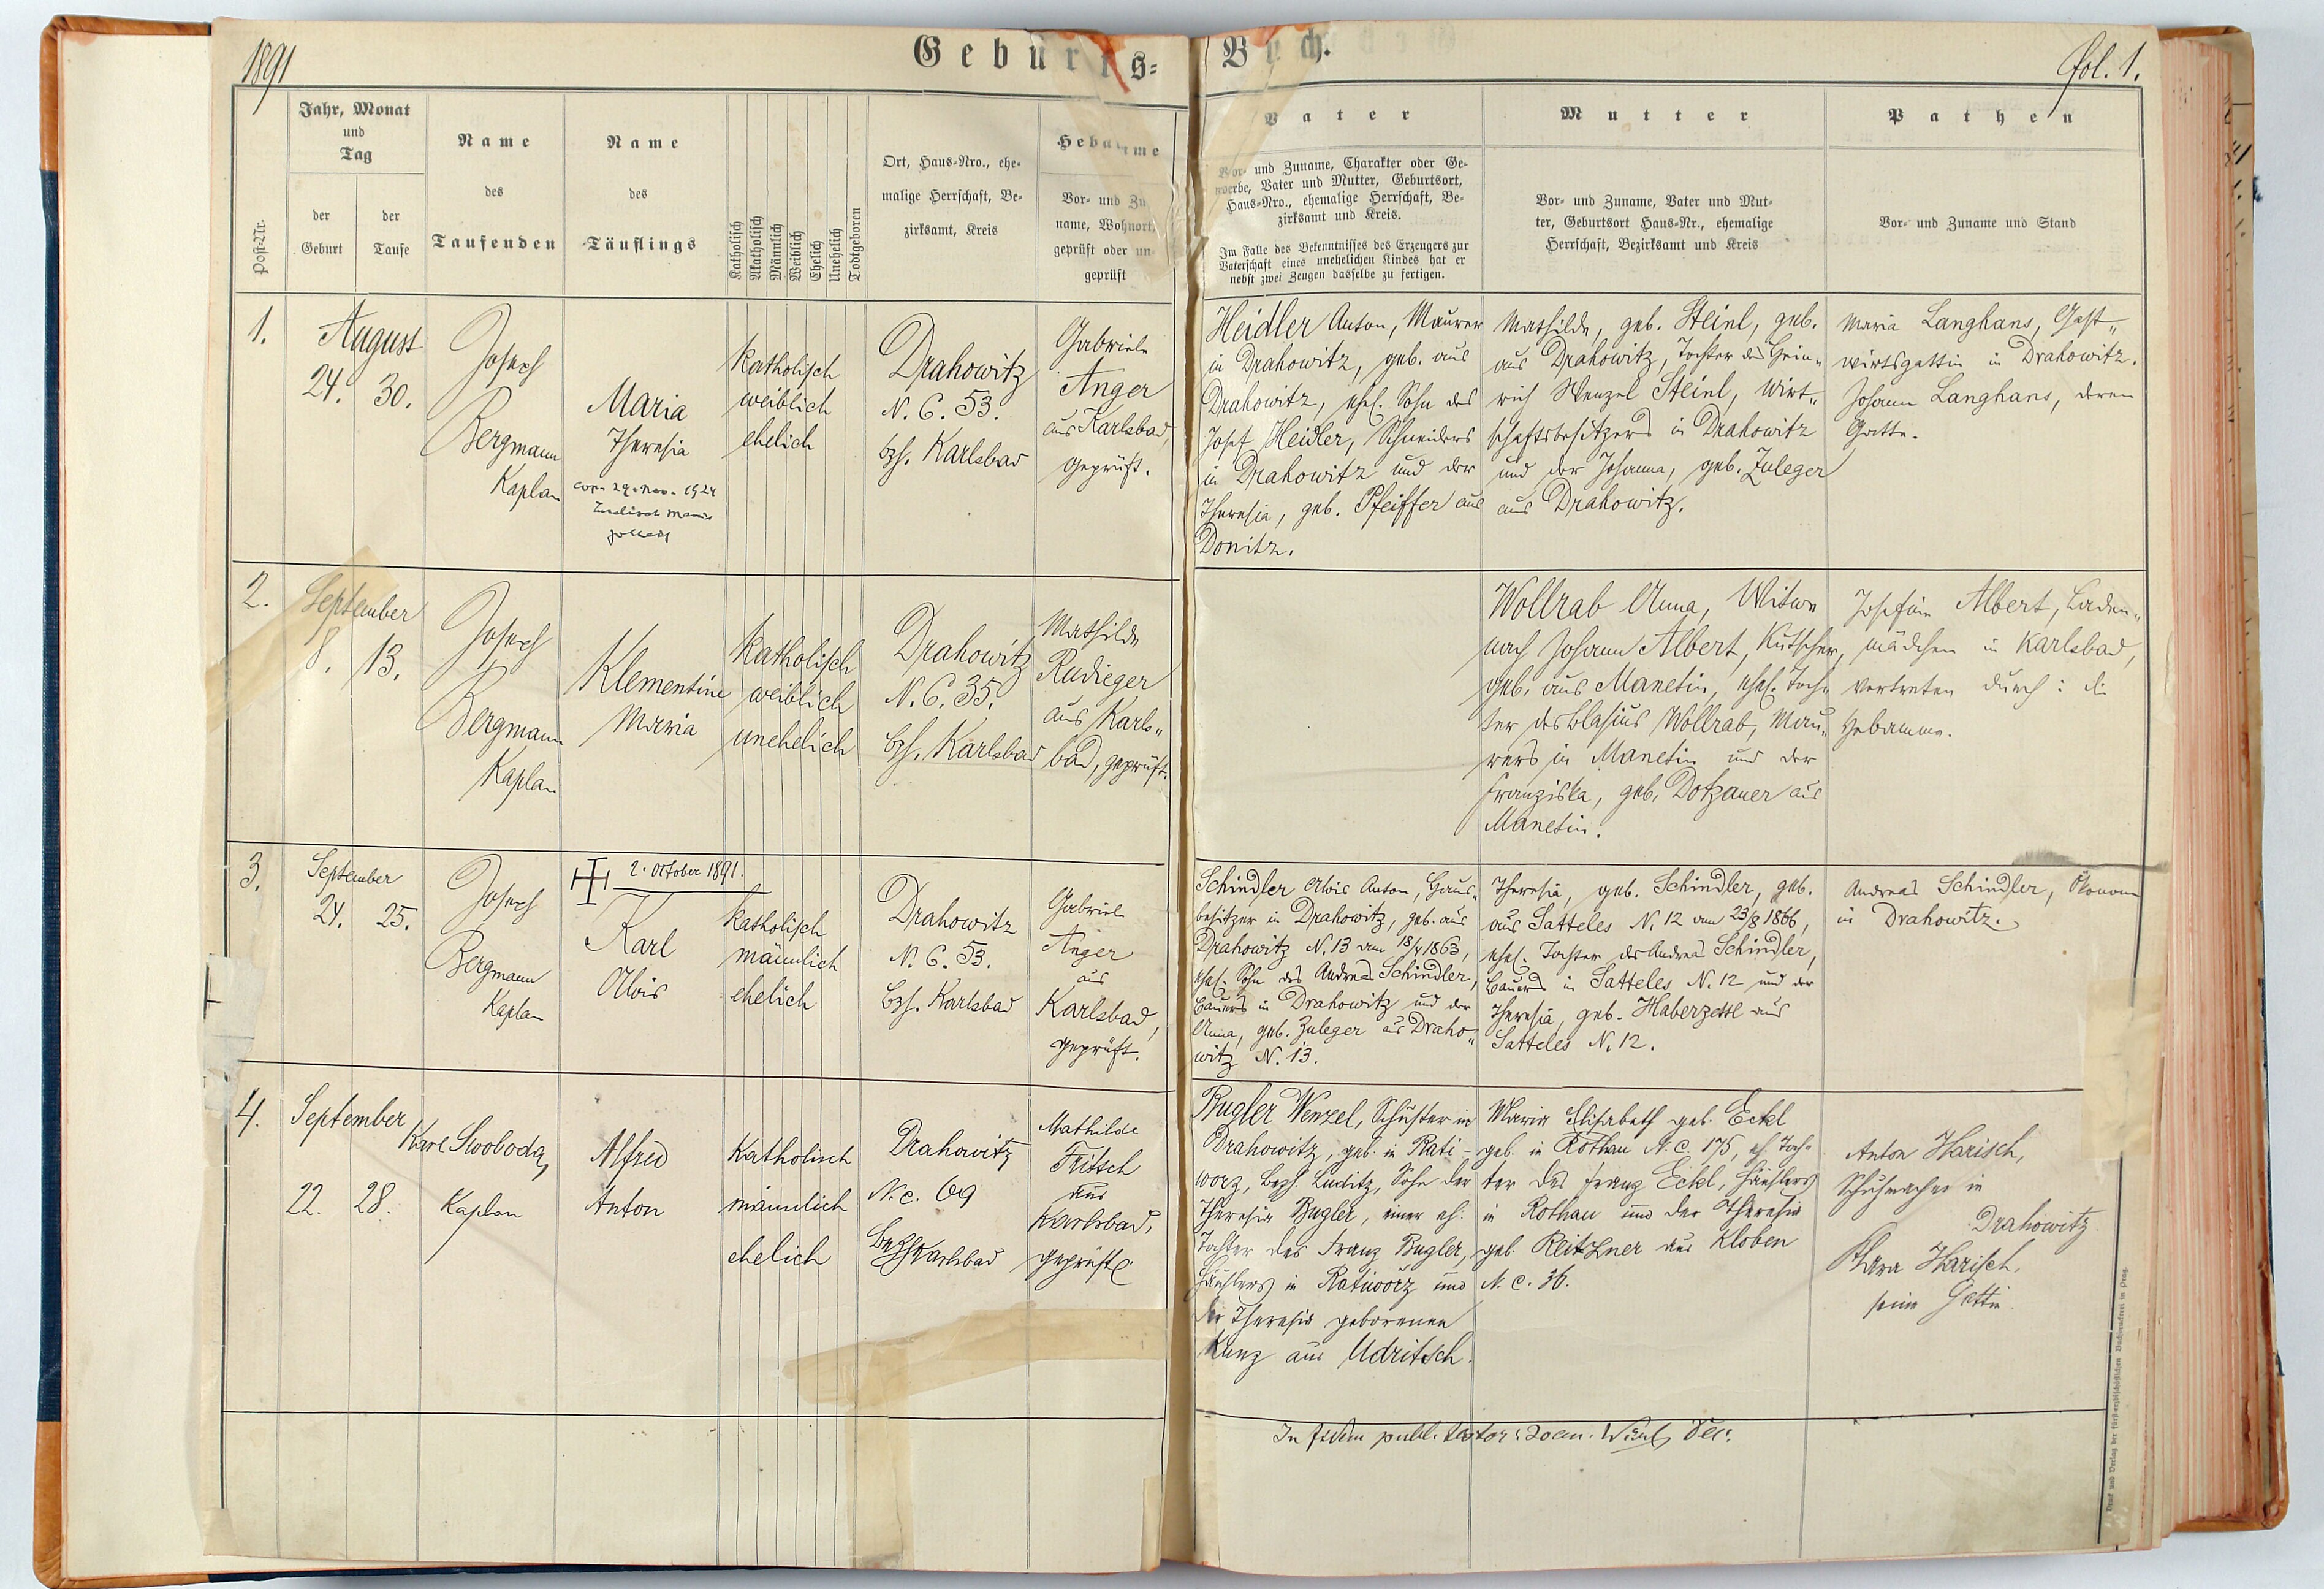 1891
Geburts-Buch.
fol. 1.
Post-Nr.
Jahr, Monat
und
Tag
der
Geburt
der
Taufe
Name
des
Taufenden
Name
des
Täuflings
Katholisch
Akatholisch
Männlich
Weiblich
Ehelich
Unehelich
Todtgeboren
Ort, Haus-Nro., ehe-
malige Herrschaft, Be-
zirksamt, Kreis
Hebamme
Vor- und Zu-
name, Wohnort,
geprüft oder un-
geprüft
Vater
Vor- und Zuname, Charakter oder Ge-
werbe, Vater und Mutter, Geburtsort,
Haus-Nro., ehemalige Herrschaft, Be-
zirksamt und Kreis.
Im Falle des Bekenntnisses des Erzeugers zur
Vaterschaft eines unehelichen Kindes hat er
nebst zwei Zeugen dasselbe zu fertigen.
Mutter
Vor- und Zuname, Vater und Mut-
ter, Geburtsort Haus-Nr., ehemalige
Herrschaft, Bezirksamt und Kreis
Pathen
Vor- und Zuname und Stand
1.
August
24. 30.
Josef
Bergmann
Kaplan
Maria
Theresia
cop. 29. Nov. 1924
katholisch
weiblich
ehelich
Drahowitz
N. C. 53.
bzh. Karlsbad
Gabriele
Anger
aus Karlsbad,
geprüft.
Heidler Anton, Maurer
in Drahowitz, geb. aus
Drahowitz, ehel. Sohn des
Josef Heidler, Schneiders
in Drahowitz und der
Theresia, geb. Pfeiffer aus
Donitz.
Mathilde, geb. Steinl, geb.
aus Drahowitz, Tochter des Hein„
rich Wenzel Steinl, Wirt„
schaftsbesitzers in Drahowitz
und der Johanna, geb. Zuleger
aus Drahowitz.
Maria Langhans, Gast„
wirtsgattin in Drahowitz.
Johann Langhans, deren
Gatte.
2.
September
8. 13.
Josef
Bergmann
Kaplan
Klementine
Maria
katholisch
weiblich
unehelich
Drahowitz
N. C. 35.
bzh. Karlsbad
Mathilde
Rudieger
aus Karls„
bad, geprüft.
Wollrab Anna, Witwe
nach Johann Albert, Kutscher,
geb. aus Manetin, ehel. Toch„
ter des Blasius Wollrab, Mau„
rers in Manetin und der
Franziska, geb. Dotzauer aus
Manetin.
Josefine Albert, Laden„
mädchen in Karlsbad,
vertreten durch: die
Hebamme.
3.
September
24. 25.
Josef
Bergmann
Kaplan
2. October 1891.
Karl
Alois
katholisch
männlich
ehelich
Drahowitz
N. C. 53.
bzh. Karlsbad
Gabriele
Anger
aus
Karlsbad,
geprüft.
Schindler Alois Anton, Haus„
besitzer in Drahowitz, geb. aus
Drahowitz N. 13 am 18/4 1863,
ehel. Sohn des Andreas Schindler,
Bauers in Drahowitz und der
Anna, geb. Zuleger aus Draho„
witz N. 13.
Theresia, geb. Schindler, geb.
aus Satteles N. 12 am 23/8 1866,
ehel. Tochter des Andreas Schindler,
Bauers in Satteles N. 12 und der
Theresia, geb. Haberzettl aus
Satteles N. 12.
Andreas Schindler, Ökonom
in Drahowitz.
4.
September
22. 28.
Karl Swoboda,
Kaplan
Alfred
Anton
Katholisch
männlich
ehelich
Drahowitz
N. c. 69
Bezh Karlsbad
Mathilde
Fritsch
aus
Karlsbad,
geprüft
Bugler Wenzel, Schuster in
Drahowitz, geb. in Rati-
worz, Bezh. Luditz, Sohn der
Theresia Bugler, einer eh.
Tochter des Franz Bugler,
Häuslers in Ratiworz und
der Theresia geborenen
Kunz aus Udritsch.
Maria Elisabeth geb. Eckl
geb. in Rothau N. c. 175, eh. Toch-
ter des Franz Eckl, Häuslers
in Rothau und der Theresia
geb. Reitzner aus Kloben
N. c. 36.
Anton Harisch,
Schuhmacher in
Drahowitz
Klara Harisch,
seine Gattin.
Druck und Verlag der fürsterzbischöflichen Buchdruckerei in Prag.